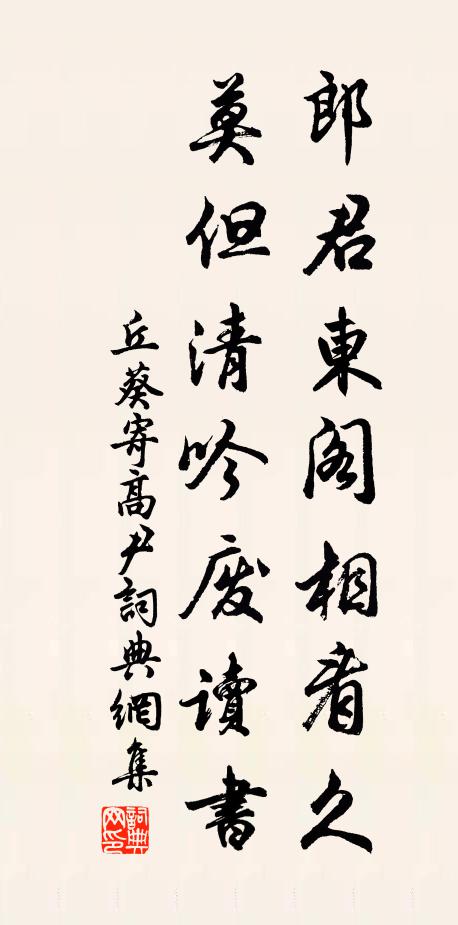 郎君東閣相看久
莫但清吟廢讀書
丘葵寄高尹詞典網集
詞典網印